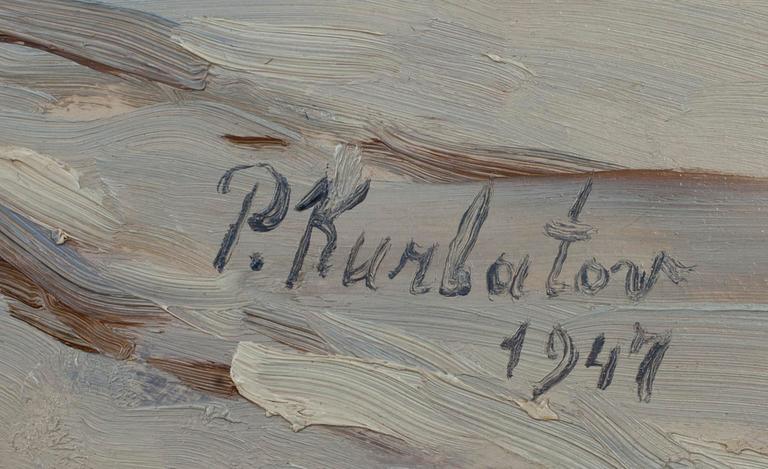 P. Kurbatov
1947